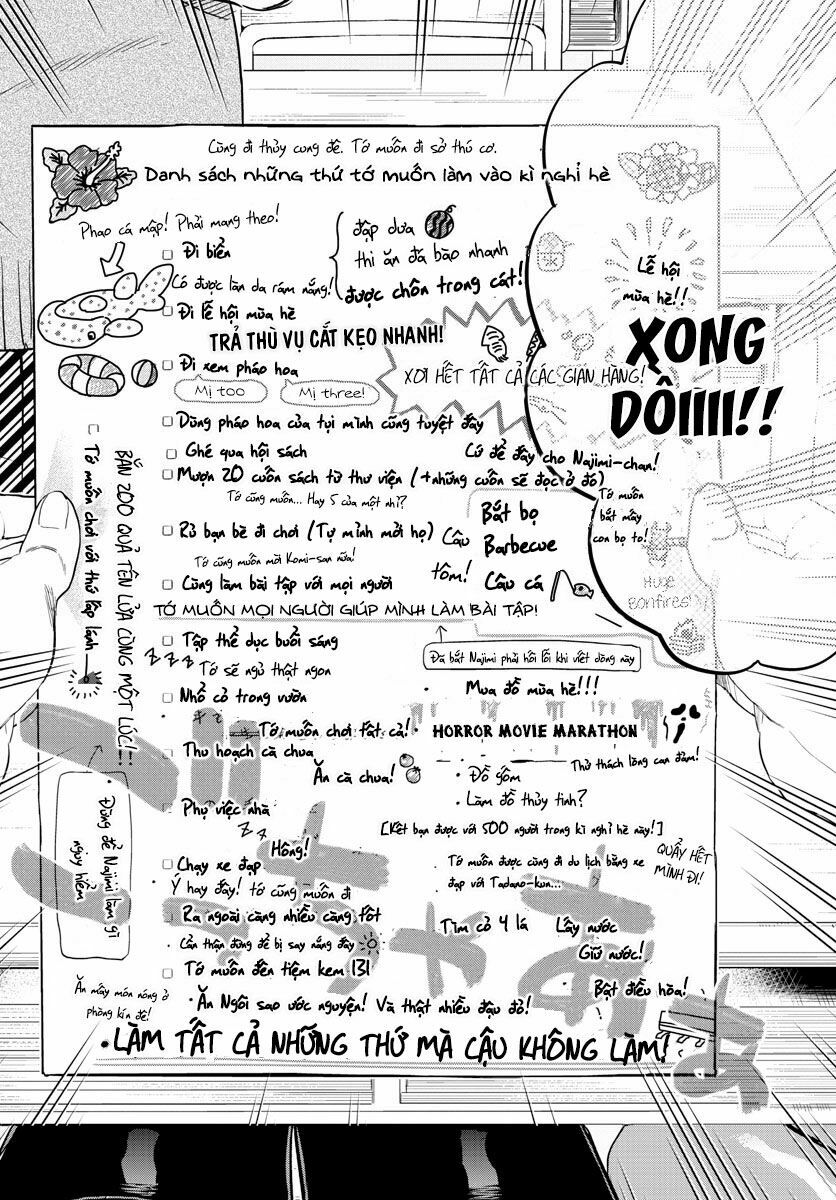 Cùng đi thủy cung đê. Tớ muốn đi sở thú cơ.
Danh sách những thứ tớ muốn làm vào kì nghỉ hè
Phao cá mập! Phải mang theo!
Đi biển
đập dưa
thi ăn đá bào nhanh
được chôn trong cát!
Có được làn da rám nắng!
Đi lễ hội mùa hè
TRẢ THÙ VỤ CẮT KẸO NHANH!
Lễ hội
mùa hè!!
XONG
DỒIIIII!!
Đi xem pháo hoa
Mị too
Mị three!
XƠI HẾT TẤT CẢ CÁC GIAN HÀNG!
Dùng pháo hoa của tụi mình cũng tuyệt đấy
Ghé qua hội sách
Cứ để đấy cho Najimi-chan!
Mượn 20 cuốn sách từ thư viện (+những cuốn sẽ đọc ở đó)
Tớ cũng muốn... Hay 5 của một nhỉ?
Rủ bạn bè đi chơi (Tự mình mời họ)
Tớ cũng muốn mời Komi-san nữa!
Cùng làm bài tập với mọi người
Câu
tôm!
Bắt bọ
Barbecue
Câu cá
Tớ muốn
bắt mấy
con bọ to!
Huge
Bonfires!
TỚ MUỐN MỌI NGƯỜI GIÚP MÌNH LÀM BÀI TẬP!
Đã bắt Najimi phải hối lỗi khi viết dòng này
Tớ muốn chơi với thứ lấp lánh
BẮN 200 QUẢ TÊN LỬA CÙNG MỘT LÚC!!
Đừng để Najimi làm gì
nguy hiểm
Tập thể dục buổi sáng
Tớ sẽ ngủ thật ngon
Nhổ cỏ trong vườn
Tớ muốn chơi tất cả!
Thu hoạch cà chua
Ăn cà chua!
Phụ việc nhà
Hông!
Chạy xe đạp
Ý hay đấy! tớ cũng muốn đi
Ra ngoài càng nhiều càng tốt
Cẩn thận đừng để bị say nắng đấy
Tớ muốn đến tiệm kem 131
Mua đồ mùa hè!!!
HORROR MOVIE MARATHON
Thử thách lòng can đảm!
Đồ gốm
Làm đồ thủy tinh?
[Kết bạn được với 500 người trong kì nghỉ hè này!]
QUẨY HẾT
MÌNH ĐI!
Tớ muốn được cùng đi du lịch bằng xe
đạp với Tadano-kun...
Tìm cỏ 4 lá
Lấy nước
Giữ nước!
Bật điều hòa!
Ăn mấy món nóng ở
phòng kín đê!
Ăn Ngôi sao ước nguyện! Và thật nhiều đậu đỏ!
LÀM TẤT CẢ NHỮNG THỨ MÀ CẬU KHÔNG LÀM!